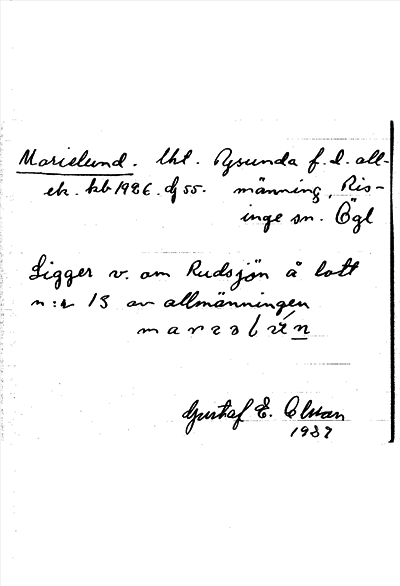 Marielund. lht. Rysunda f.d. all-
ek. kb 1926. dj 55. männing, Ris-
inge sn. Ögl
Ligger v. om Rudsjön å lott
n:r 13 av allmänningen
Gustaf E. Olsson
1937